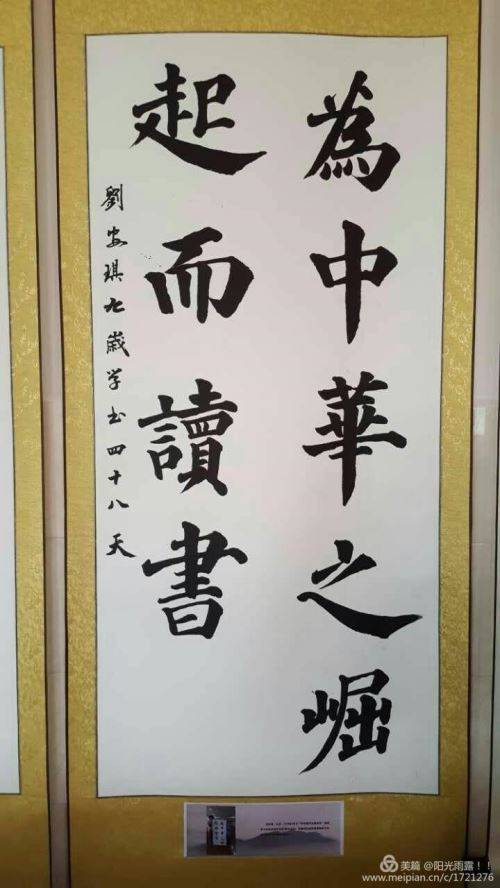 為中華之崛
起而讀書
劉安琪九歲学书四十八天
美篇 @阳光雨露！！
www.meipian.cn/c/1721276